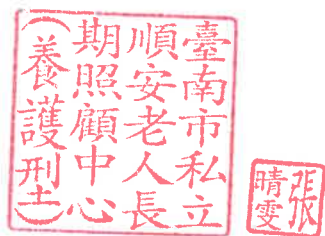 臺南市私立
順安老人長
期照顧中心
(養護型)
張
晴雯